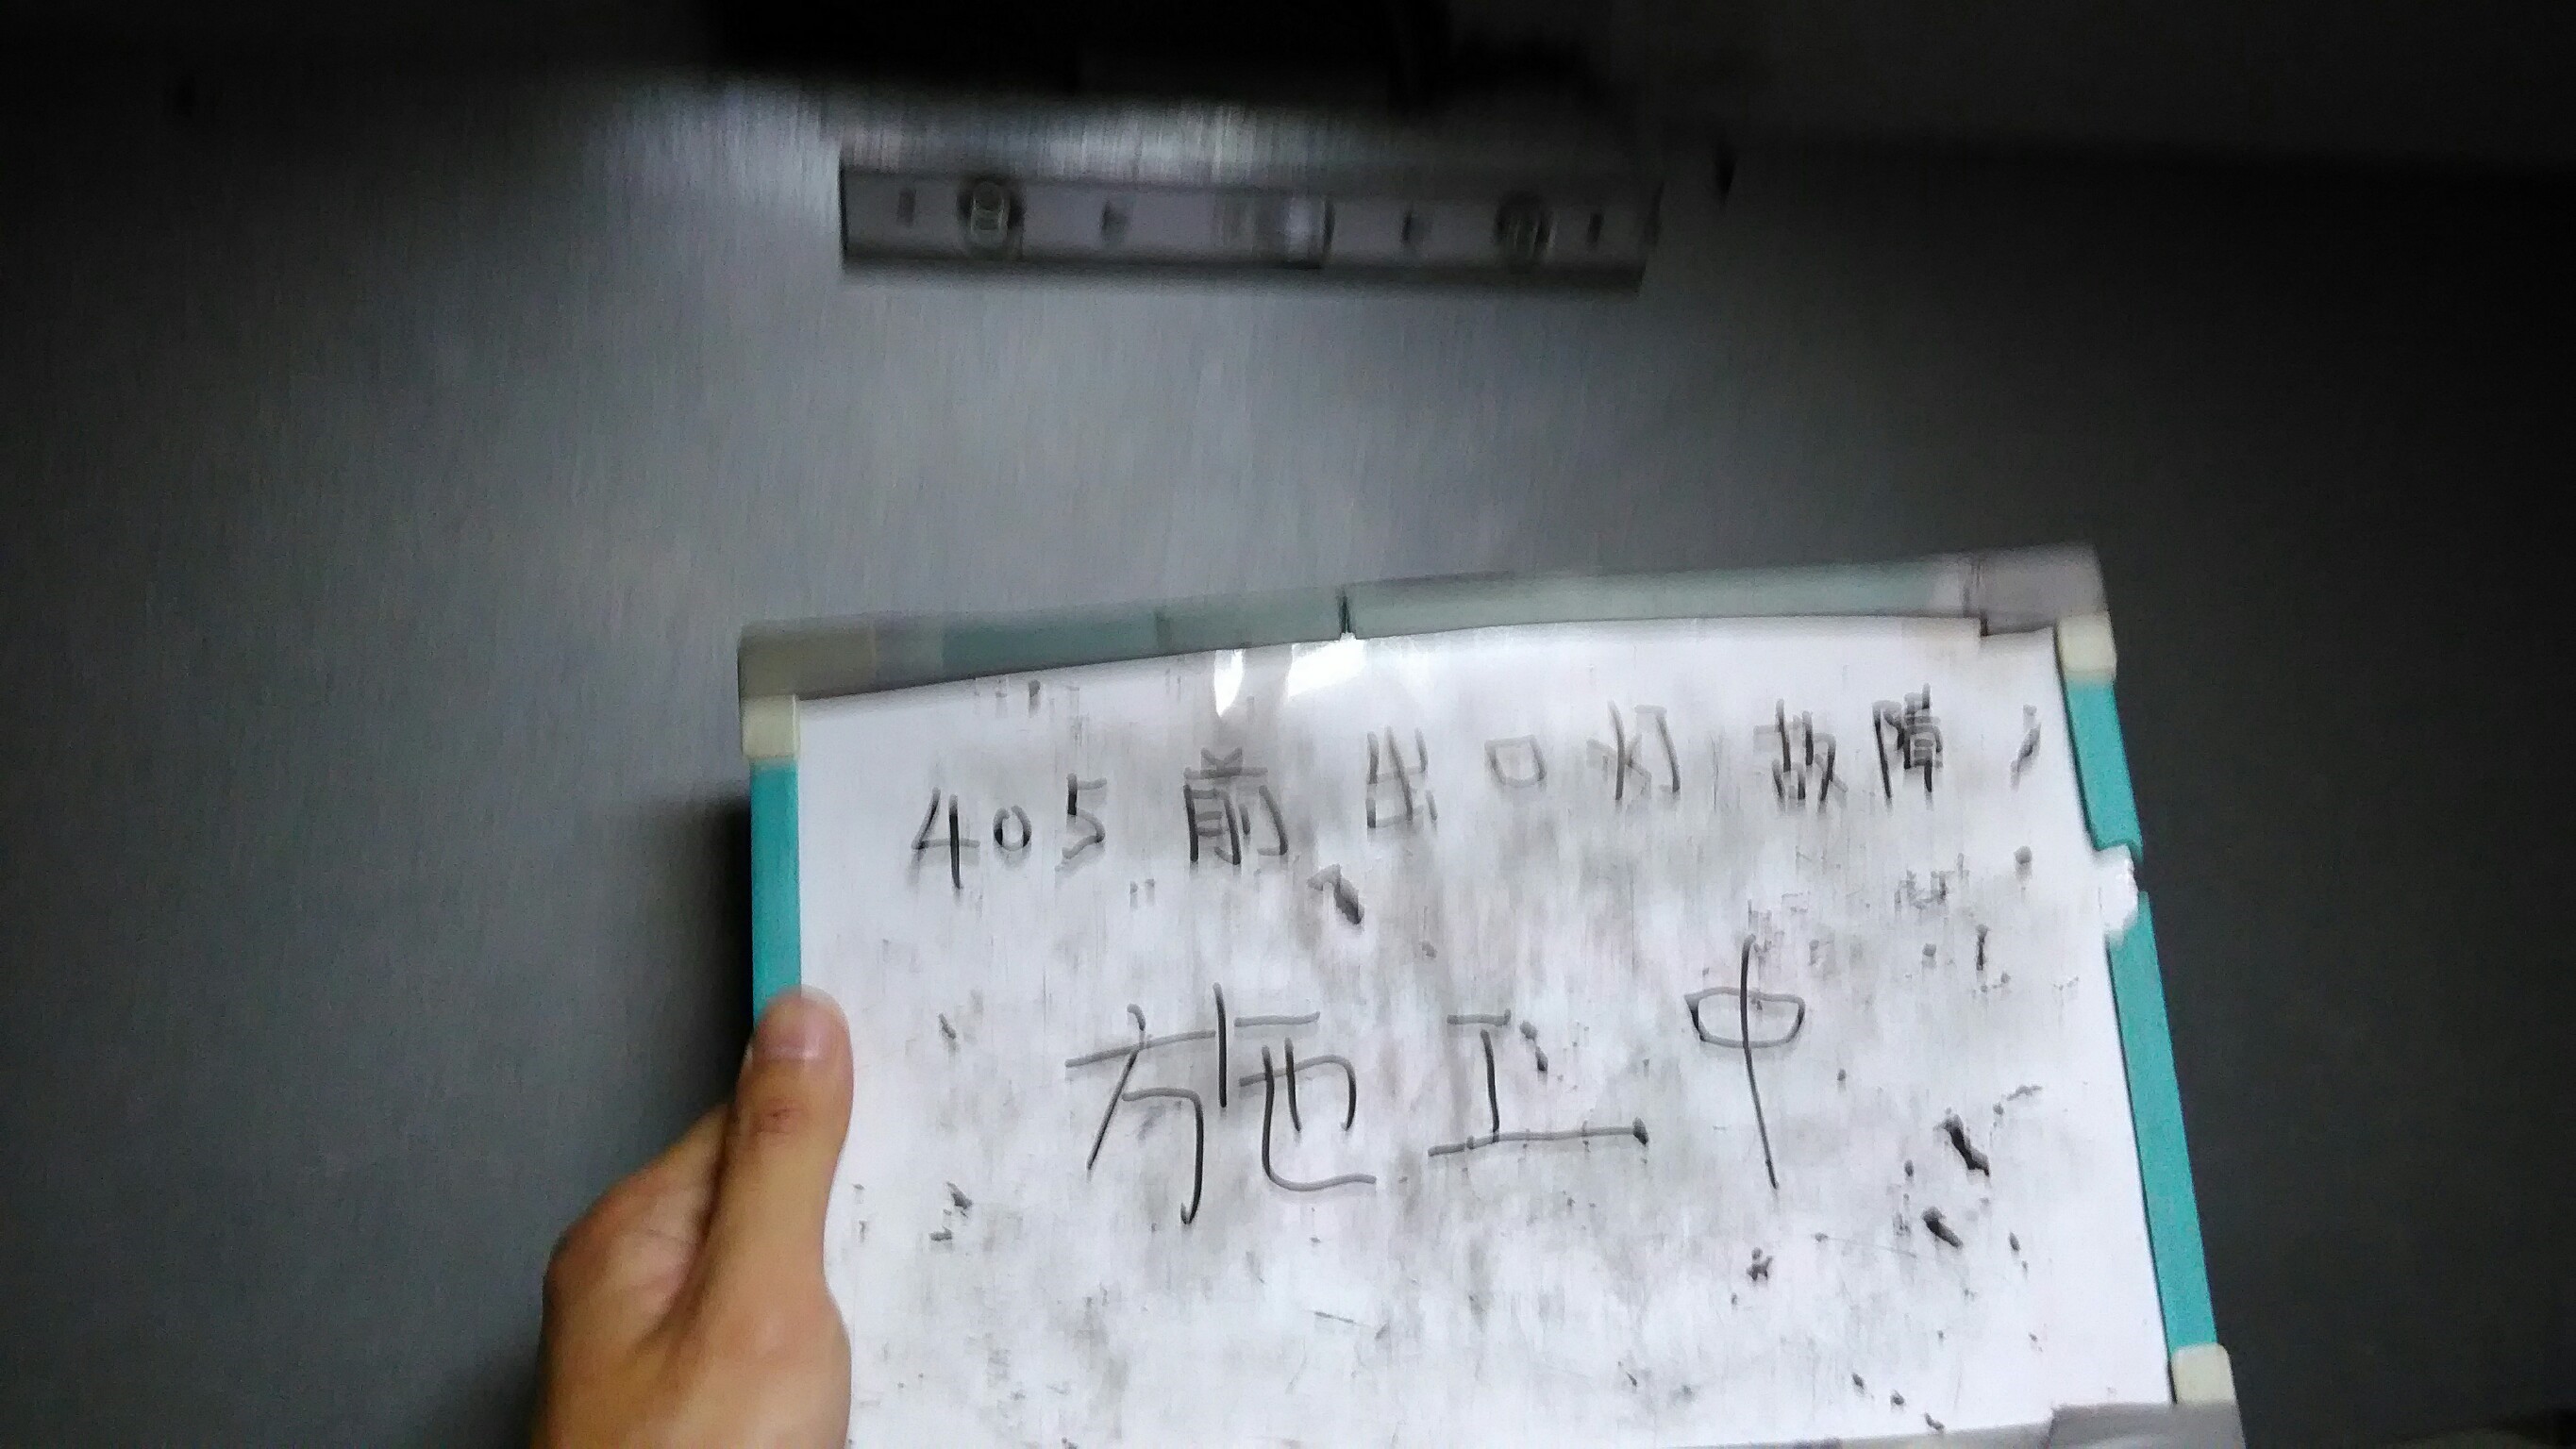 405前出口灯故障
施工中